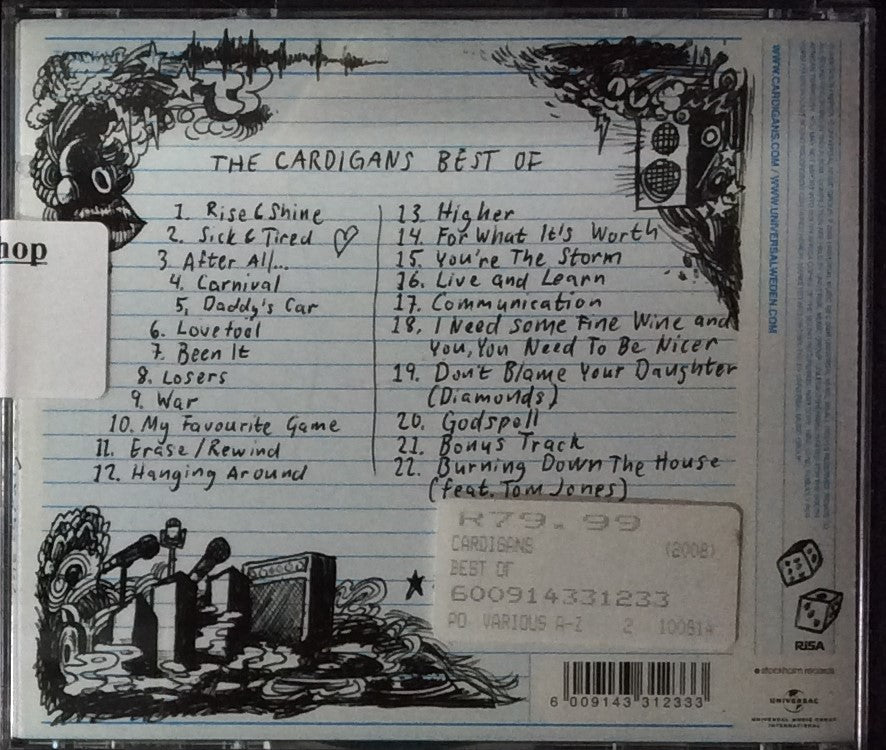 THE CARDIGANS BEST OF
hop
1. Rise & Shine
2. Sick & Tired
3. After All...
4. Carnival
5. Daddy's Car
6. Lovefool
7. Been It
8. Losers
9. War
10. My Favourite Game
11. Erase/Rewind
12. Hanging Around
13. Higher
14. For What It's Worth
15. You're The Storm
16. Live and Learn
17. Communication
18. I Need Some Fine Wine and
You, You Need To Be Nicer
19. Don't Blame Your Daughter
(Diamonds)
20. Godspell
21. Bonus Track
22. Burning Down The House
(feat. Tom Jones)
R79.99
CARDIGANS (2008)
BEST OF
600914331233
PO VARIOUS A-Z 2 100814
6 009143 312333
WWW.CARDIGANS.COM / WWW.UNIVERSALWEDEN.COM
RiSA
stockholm records
UNIVERSAL
UNIVERSAL MUSIC GROUP
INTERNATIONAL